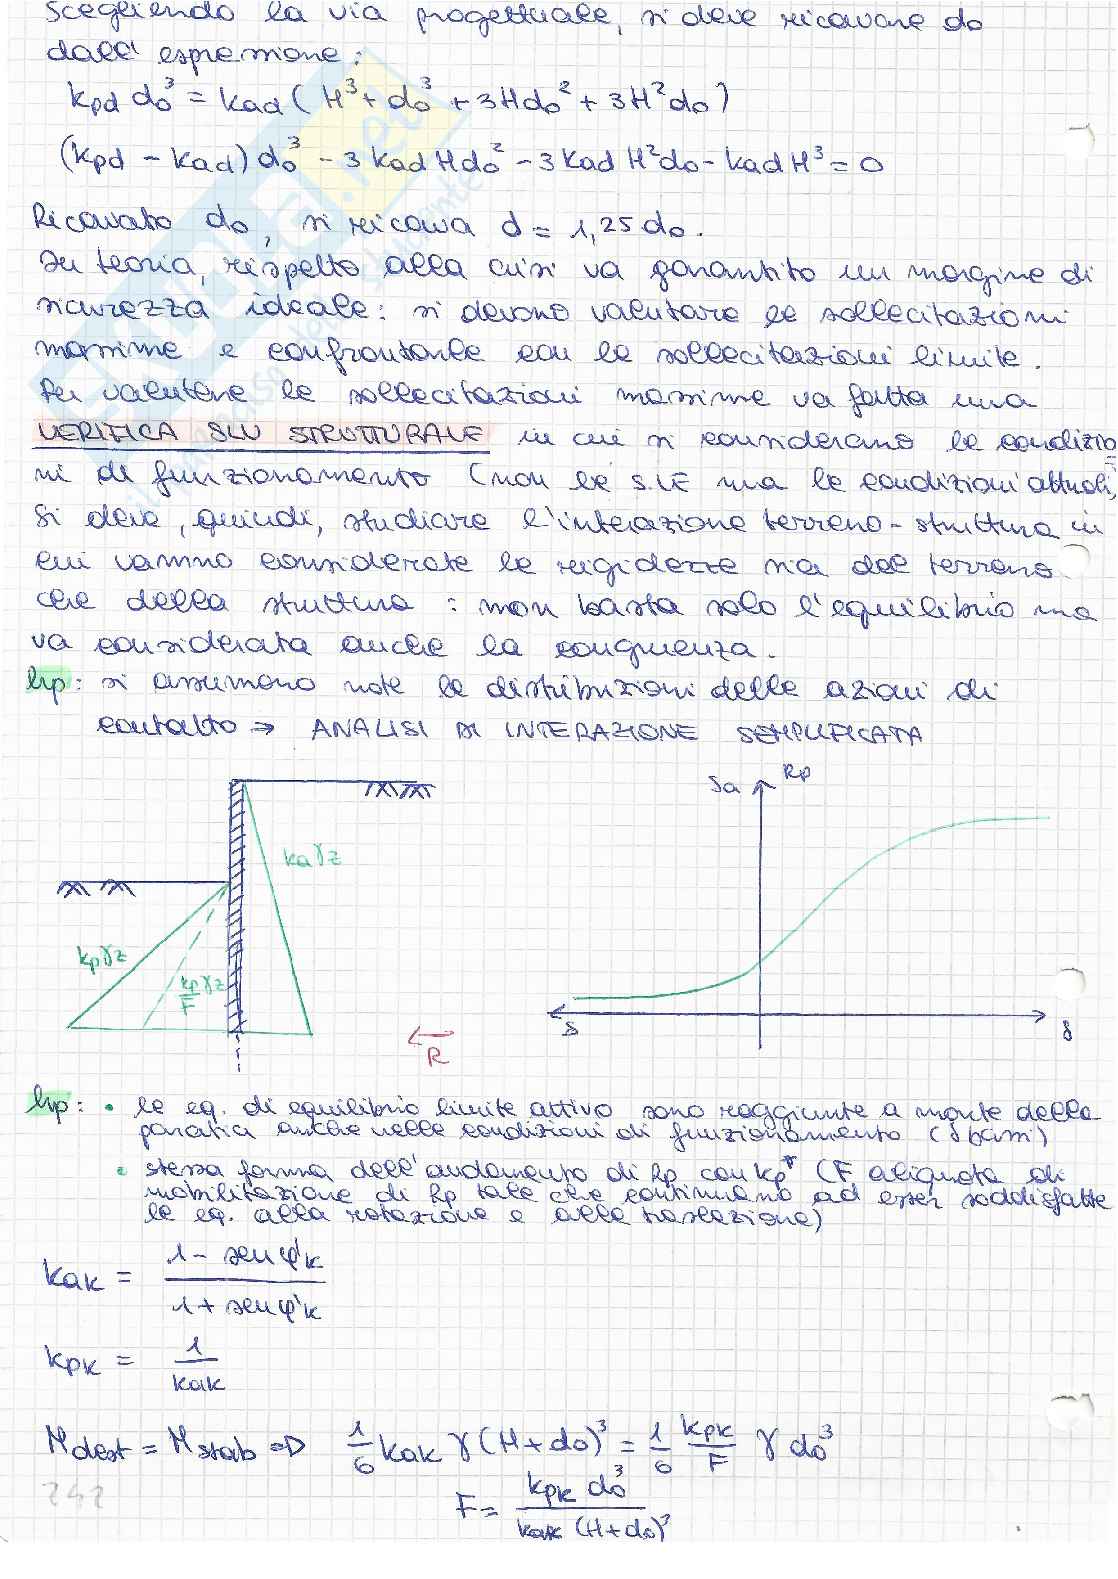 Scegliendo la via progettuale, si deve ricavare do
dall' espressione:
kpd do³ = kad ( H³ + do³ + 3Hdo² + 3H²do )
(kpd - kad) do³ - 3 kad Hdo² - 3 kad H²do - kad H³ = 0
Ricavato do, si ricava d = 1,25 do.
In teoria, rispetto alla crisi va garantito un margine di
sicurezza ideale: si devono valutare le sollecitazioni
massime e confrontarle con le sollecitazioni limite.
Per valutare le sollecitazioni massime va fatta una
VERIFICA SLU STRUTTURALE in cui si considerano le condizio
ni di funzionamento (non le S.LE ma le condizioni attuali,
Si deve, quindi, studiare l'interazione terreno-struttura in
cui vanno considerate le rigidezze sia del terreno
che della struttura : non basta solo l'equilibrio ma
va considerata anche la congruenza.
hp: si assumono note le distribuzioni delle azioni di
contatto ⇒ ANALISI DI INTERAZIONE SEMPLIFICATA
Sa Rp
ka γ z
kp γ z
kp/F γ z
R
δ δ
hp: • le eq. di equilibrio limite attivo sono raggiunte a monte della
paratia anche nelle condizioni di funzionamento (δ bassi)
• stessa forma dell'andamento di Rp con kp* (F aliquota di
mobilitazione di Rp tale che continuano ad esser soddisfatte
le eq. alla rotazione e alla traslazione)
kak = (1 - sen φ'k) / (1 + sen φ'k)
kpk = 1 / kak
Mdest = Mstab ⇒ 1/6 kak γ (H + do)³ = 1/6 kpk/F γ do³
F = kpk do³ / kak (H+do)³
242